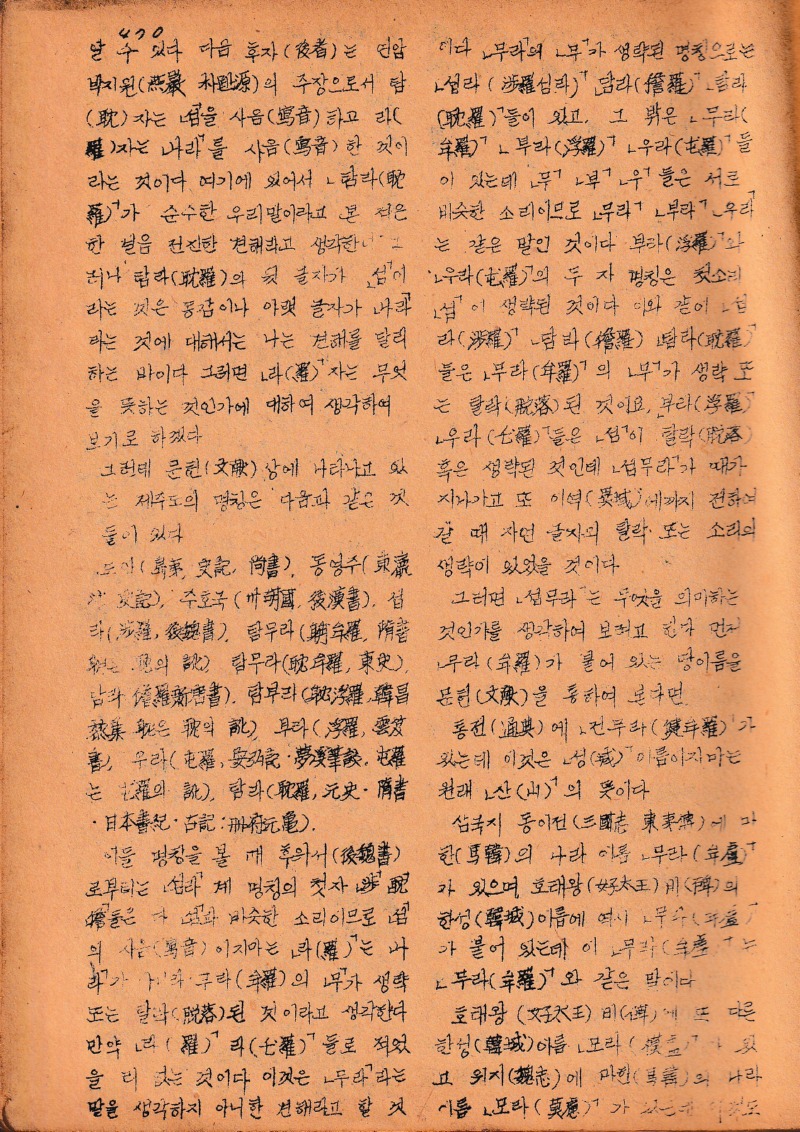 470
알 수 있다 다음 후자(後者)는 연암
박지원(燕巖 朴趾源)의 주장으로서 탐
(耽)자는 ㄴ섬ㄱ을 사음(寫音)하고 라(
羅)자는 ㄴ나라ㄱ를 사음(寫音)한 것이
라는 것이다 여기에 있어서 ㄴ탐라(耽
羅)ㄱ가 순수한 우리말이라고 본 점은
한 걸음 전진한 견해라고 생각한다 그
러나 탐라(耽羅)의 윗 글자가 ㄴ섬ㄱ이
라는 것은 동감이나 아랫 글자가 ㄴ나라ㄱ
라는 것에 대해서는 나는 견해를 달리
하는 바이다 그러면 ㄴ라(羅)ㄱ자는 무엇
을 뜻하는 것인가에 대하여 생각하여
보기로 하겠다
그런데 문헌(文献)상에 나타나고 있
는 제주도의 명칭은 다음과 같은 것
들이 있다
史記, 尙書), 동영주(東瀛
史記), 주호국(州胡國, 後漢書), 섭
라(涉羅, 後魏書), 탐무라(耽牟羅, 隋書
의 訛) 탐무라(耽牟羅, 東史),
담라 儋羅新唐書), 탐부라(耽浮羅, 韓昌
黎集 耽은 耽의 訛), 부라(浮羅,
書), 우라(屯羅, 夢溪筆談, 屯羅
는 乇羅의 訛), 탐라(耽羅, 元史·隋書
·日本書紀·古記:册府元龜).
이들 명칭을 볼 때 후위서(後魏書)
로부터는 ㄴ섭라ㄱ 제 명칭의 첫자 涉 耽
儋들은 다 ㄴ섬ㄱ과 비슷한 소리이므로 ㄴ섬
의 사음(寫音)이지마는 ㄴ라(羅)ㄱ는 나
라ㄱ가 아니라 무라(牟羅)의 ㄴ무ㄱ가 생략
또는 탈락(脫落)된 것이라고 생각한다
만약 ㄴ라(羅)ㄱ 라(乇羅)ㄱ들로 적었
을 리 없는 것이다 이것은 ㄴ무라ㄱ라는
말을 생각하지 아니한 견해라고 할 것
이다 ㄴ무라ㄱ의 ㄴ무ㄱ가 생략된 명칭으로는
ㄴ섭라(涉羅섭라)ㄱ 담라(儋羅)ㄱ ㄴ탐라
(耽羅)ㄱ들이 있고, 그 밖은 ㄴ무라(
牟羅)ㄱ ㄴ부라(浮羅)ㄱ ㄴ우라(屯羅)ㄱ들
이 있는데 ㄴ무ㄱ ㄴ부ㄱ ㄴ우ㄱ들은 서로
비슷한 소리이므로 ㄴ무라ㄱ ㄴ부라ㄱ ㄴ우라
는 같은 말인 것이다 부라(浮羅)ㄱ와
ㄴ우라(屯羅)ㄱ의 두 자 명칭은 첫소리
ㄴ섬ㄱ이 생략된 것이다 이와 같이 ㄴ섭
라(涉羅)ㄱ ㄴ담라(儋羅) ㄴ탐라(耽羅)ㄱ
들은 ㄴ무라(牟羅)ㄱ의 ㄴ무ㄱ가 생략 또
는 탈락(脫落)된 것이요, 부라(浮羅)ㄱ
ㄴ우라(乇羅)ㄱ들은 ㄴ섬ㄱ이 탈락(脫落)
혹은 생략된 것인데 ㄴ섬무라ㄱ가 때가
지나가고 또 이역(異域)에까지 전하여
갈 때 자연 글자의 탈락 또는 소리의
생략이 있었을 것이다
그러면 ㄴ섬무라ㄱ는 무엇을 의미하는
것인가를 생각하여 보려고 한다 먼저
ㄴ무라(牟羅)가 붙어 있는 땅이름을
문헌(文献)을 통하여 본다면
통전(通典)에 ㄴ건무라(健牟羅)ㄱ가
있는데 이것은 ㄴ성(城)ㄱ이름이지마는
원래 ㄴ산(山)ㄱ의 뜻이다
삼국지 동이전(三國志 東夷傳)에 마
한(馬韓)의 나라 이름 ㄴ무라(牟盧)ㄱ
가 있으며 호태왕(好太王)비(碑)의
한성(韓城)이름에 역시 ㄴ무라(牟盧)ㄱ
가 붙어 있는데 이 ㄴ무라(牟盧)ㄱ는
ㄴ무라(牟羅)ㄱ와 같은 말이다
호태왕 (好太王) 비(碑)에 또 다른
한성(韓城)이름 ㄴ모라(模盧)ㄱ가 있
고 위지(魏志)에 마한(馬韓)의 나라
이름 ㄴ모라(莫盧)ㄱ가 있는데 이것도